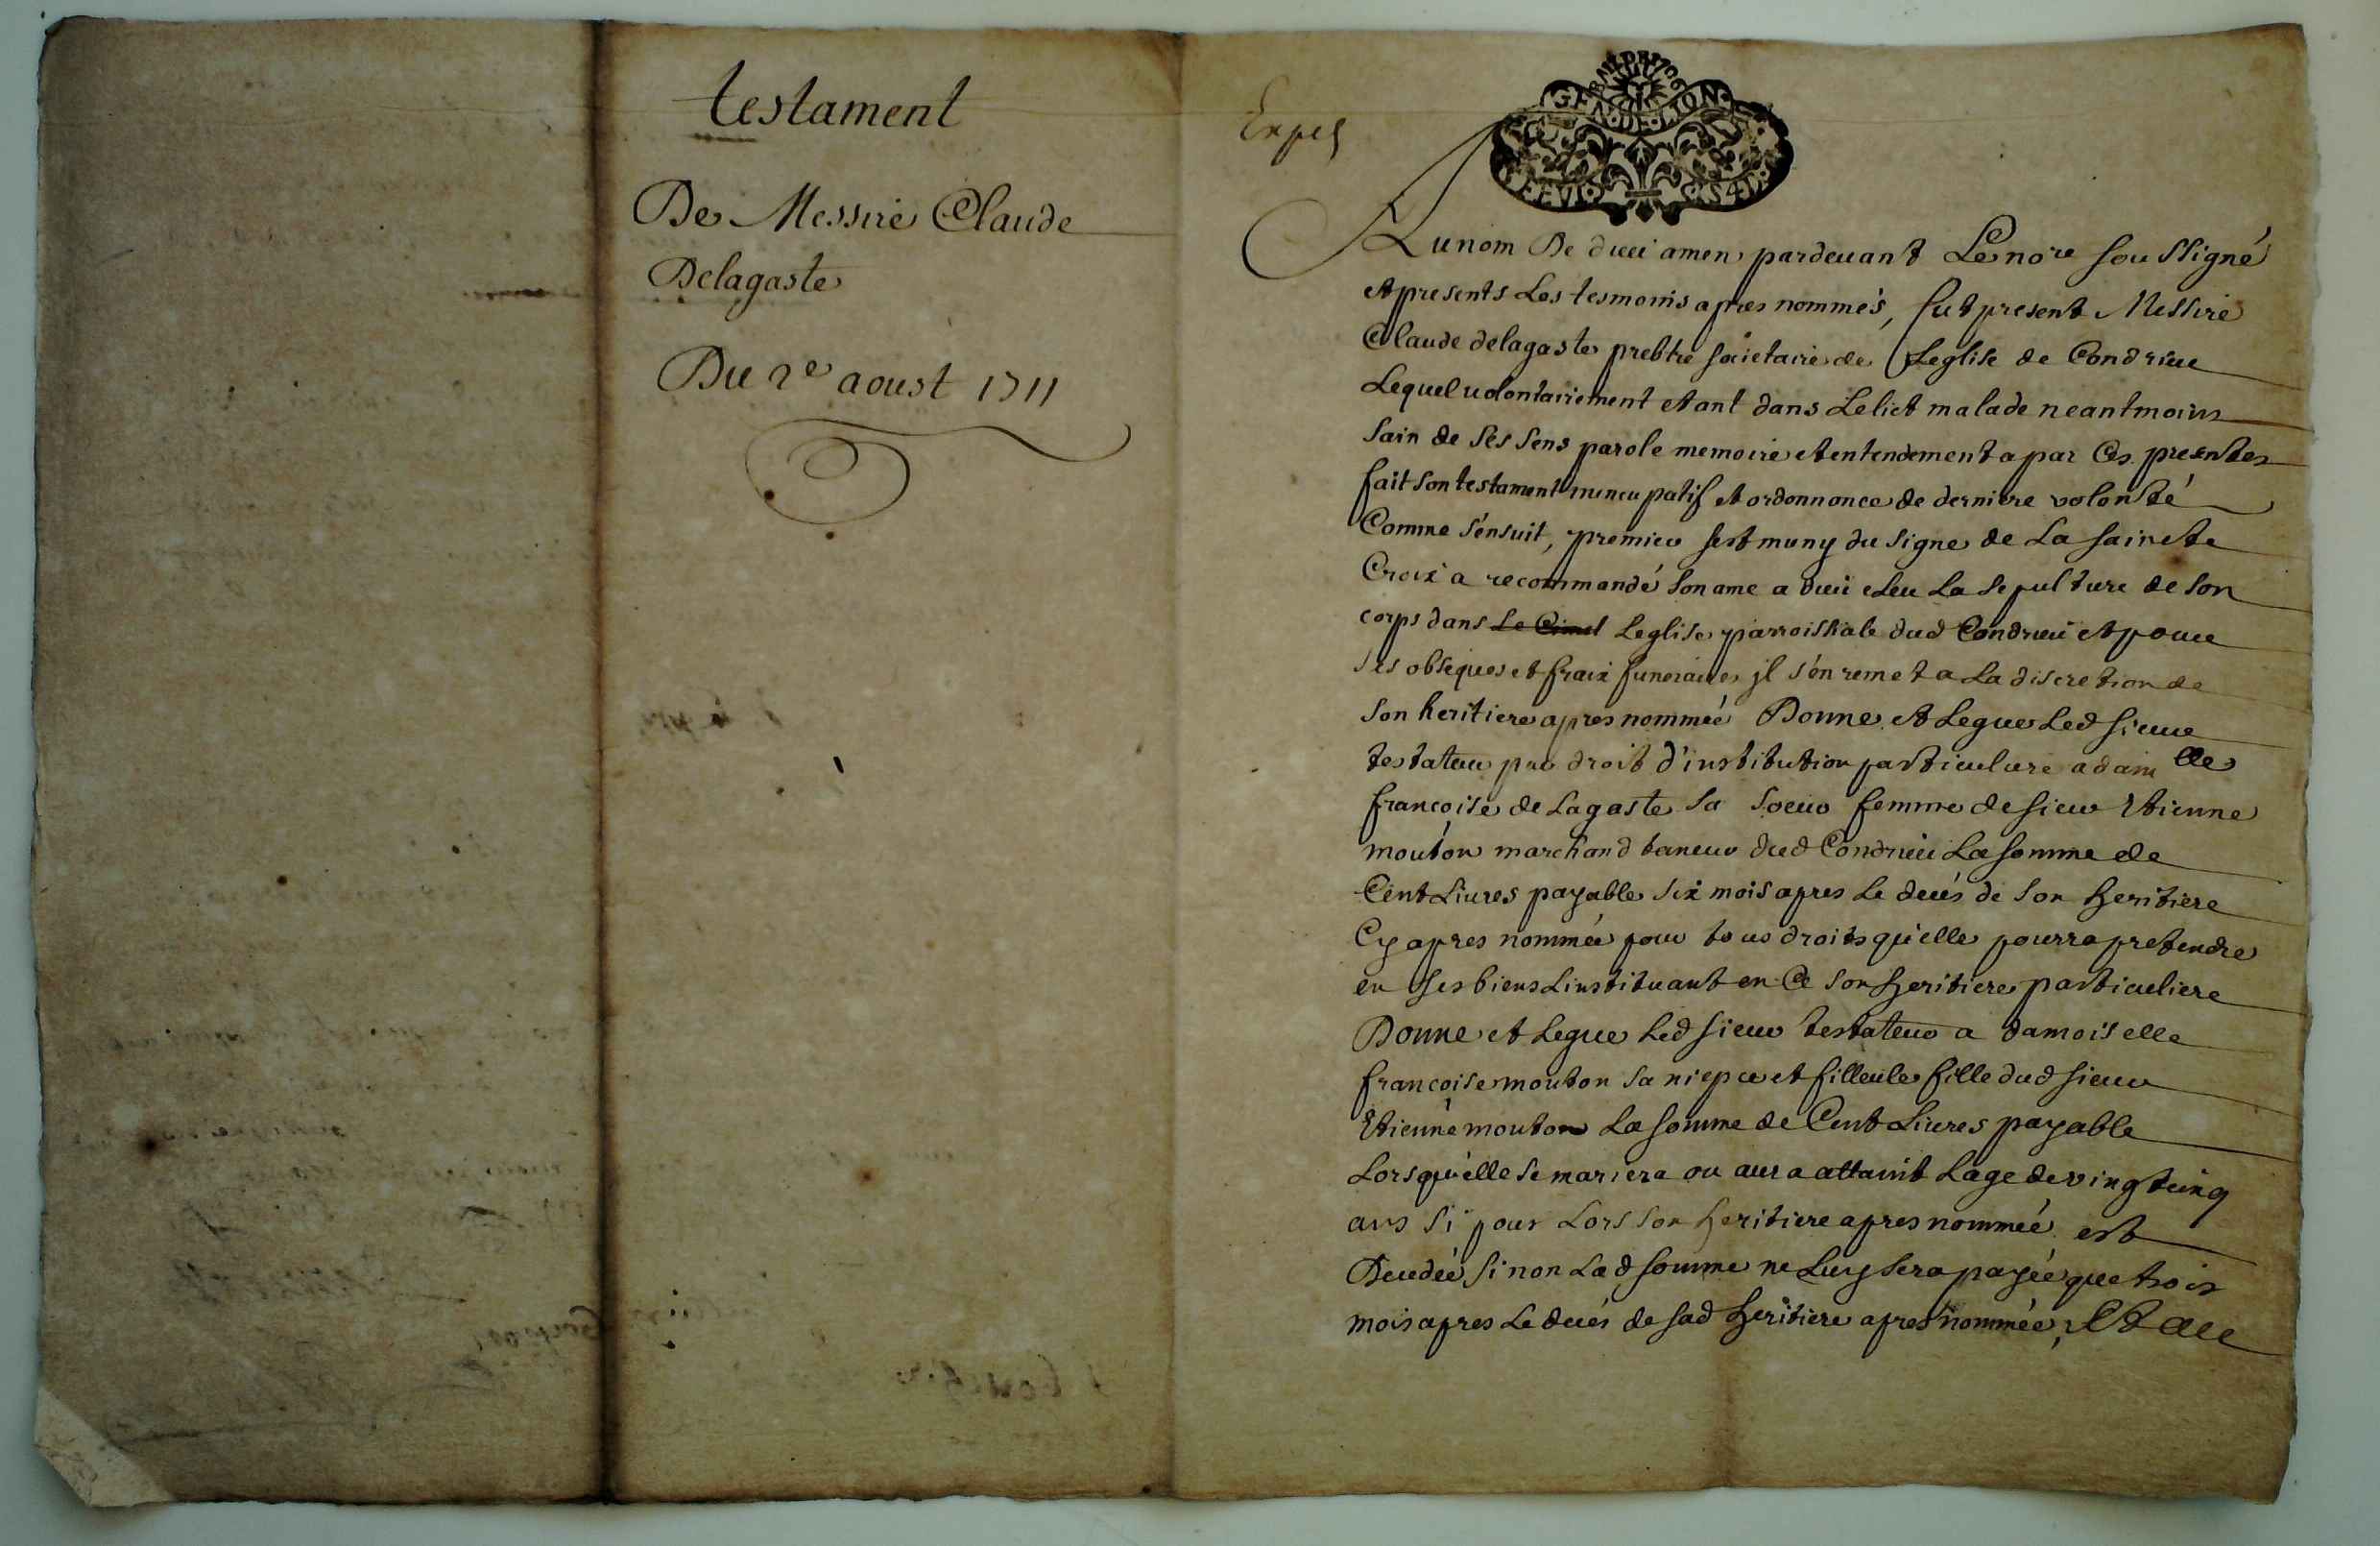 testament
De Messire Claude
Delagaste
Du 2e aoust 1711
Expeé
GENERALITE DE LYON
Au nom De dieu amen pardevant Le nore soussigné
et presents Les tesmoins apres nommés, fut present Messire
Claude delagaste prebtre societaire de Leglise de Condrieu
Lequel volontairement etant dans Le lict malade neantmoins
sain de ses sens parole memoire et entendement a par Ces presentes
fait son testament nuncupatif et ordonnonce de derniere volonté
Comme s'ensuit, premier sest muny du signe de La saincte
Croix a recommandé son ame a dieu eleu La sepulture de son
corps dans Le Cimet Leglise parroissiale dud Condrieu et pour
ses obseques et fraix funeraires jl s'en remet a La discretion de
son heritiere apres nommée Donne et Legue Led sieur
testateur par droit d'institution particuliere a dam lle
francoise de Lagaste sa soeur femme de sieur Etienne
mouton marchand taneur dud Condrieu La somme de
Cent Livres payable six mois apres Le decés de son heritiere
Cy apres nommée pour tous droits qu'elle pourra pretendre
en ses biens Linstituant en Ce son heritiere particuliere
Donne et Legue Led sieur testateur a damoiselle
francoise mouton sa niepce et filleule fille dud sieur
Etienne mouton La somme de Cent Livres payable
Lorsqu'elle se mariera ou aura attaint Lage de vingt cinq
ans si pour Lors son heritiere apres nommée est
Decedée sinon Lad somme ne Luy sera payée que trois
mois apres Le decés de sad heritiere apres nommée, Et au